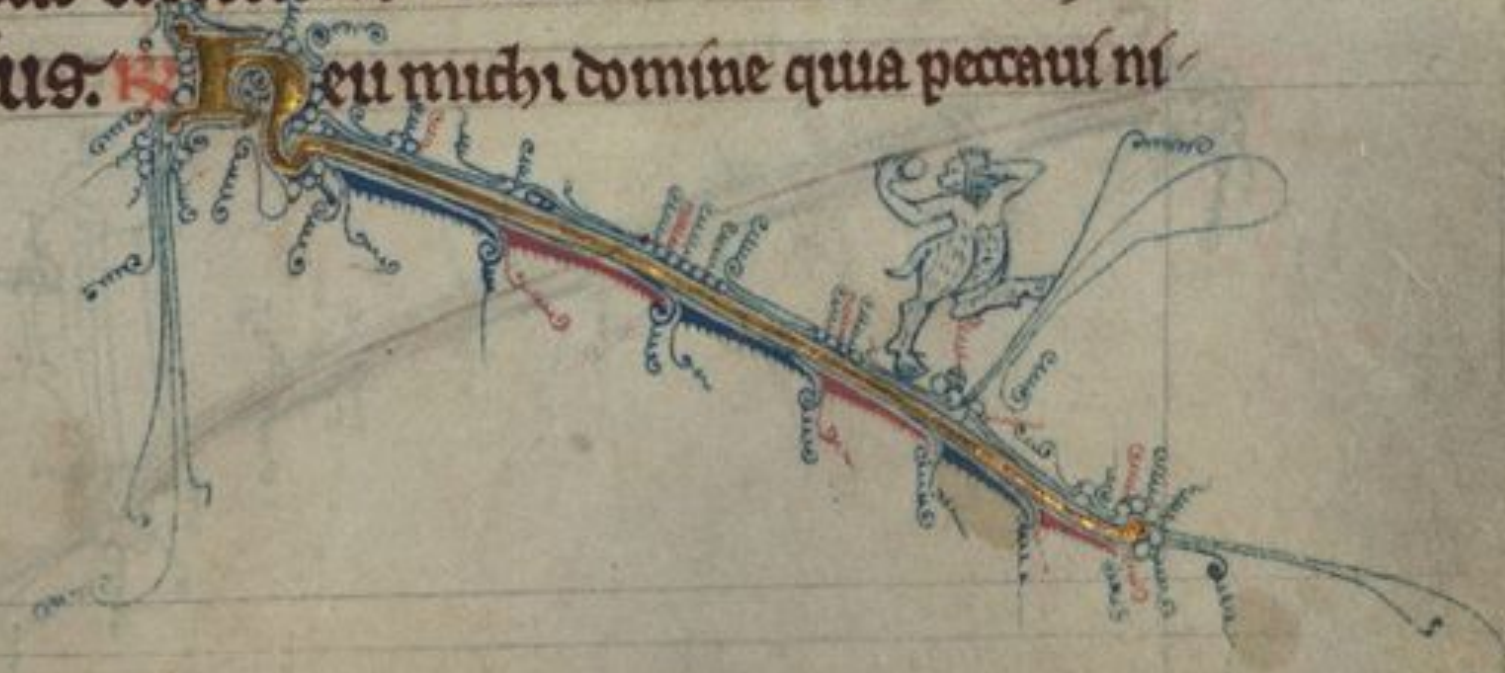 us. R Heu michi domine quia peccaui ni